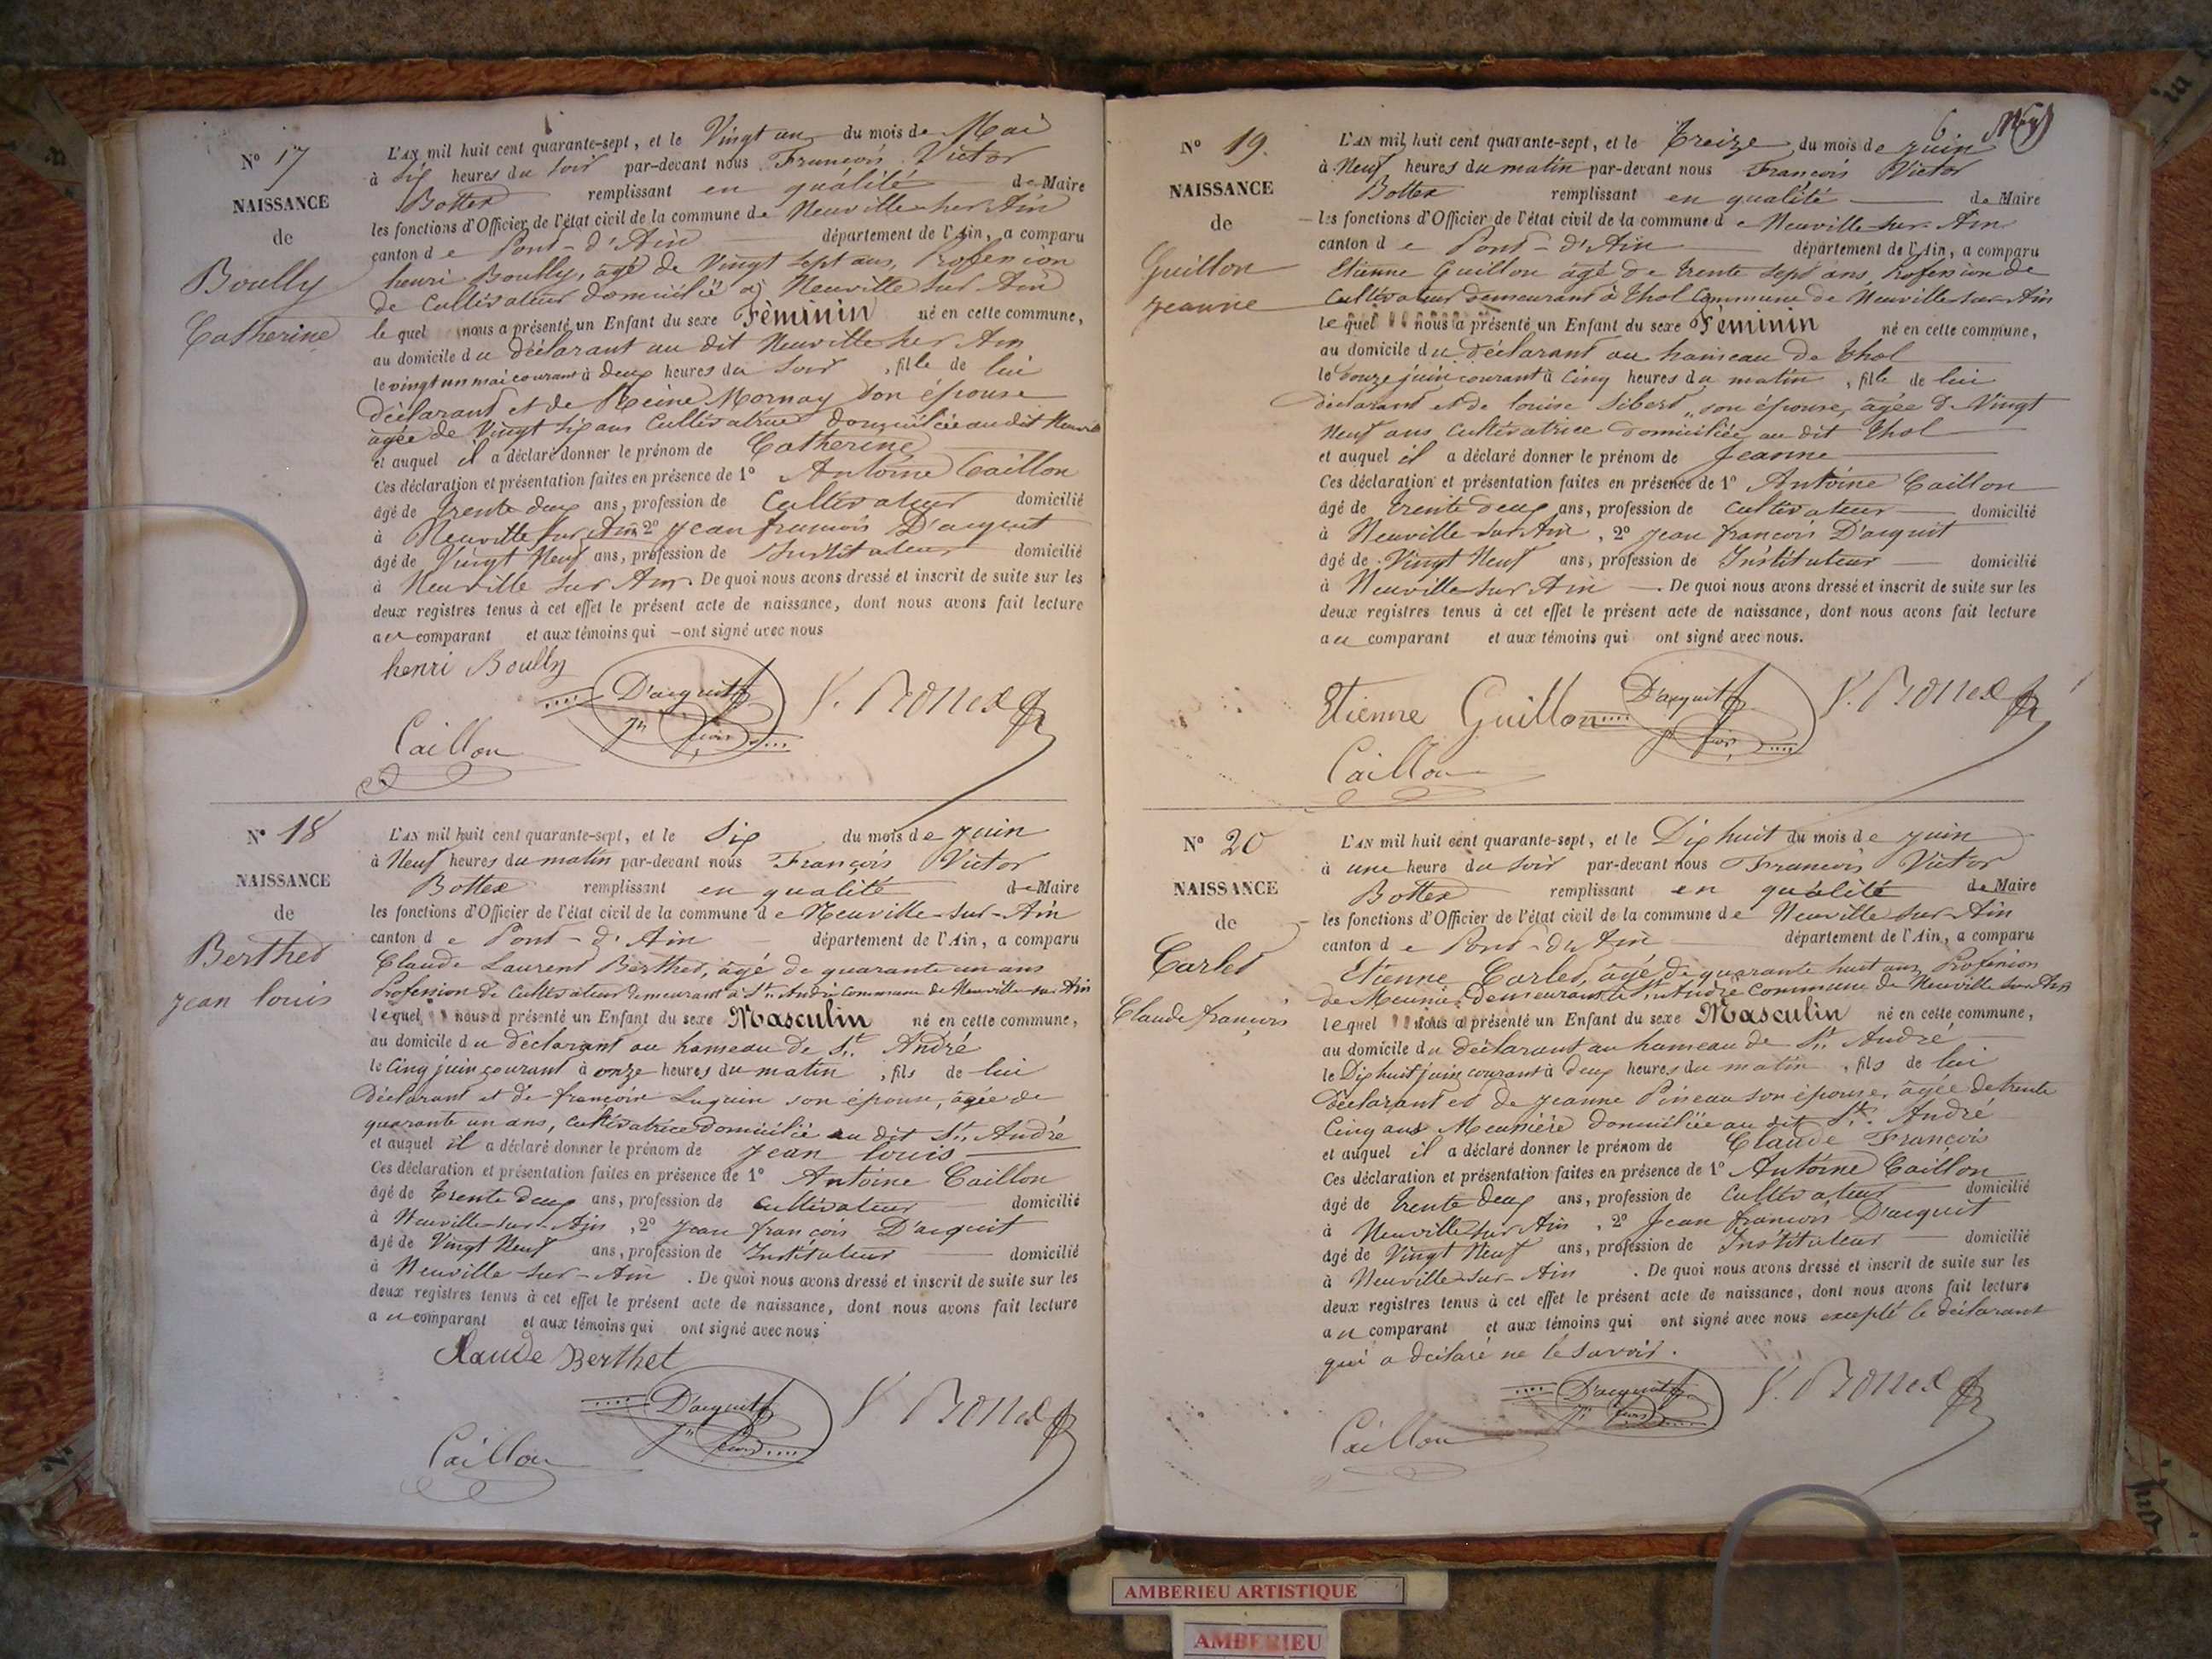 N° 17
NAISSANCE
de
Boully
Catherine
L'AN mil huit cent quarante-sept, et le Vingt un du mois de Mai
à Six heures du soir par-devant nous François Victor
Bottex remplissant en qualité de Maire
les fonctions d'Officier de l'état civil de la commune de Neuville sur Ain
canton de Pont-d'Ain département de l'Ain, a comparu
henri Boully, âgé de Vingt sept ans, Profession
de Cultivateur domicilié à Neuville sur Ain
lequel nous a présenté un Enfant du sexe Féminin né en cette commune,
au domicile du déclarant au dit Neuville sur Ain
le vingt un mai courant à deux heures du soir, fille de lui
déclarant et de Reine Mornay son épouse
âgée de Vingt six ans Cultivatrice domiciliée au dit Neuville
et auquel il a déclaré donner le prénom de Catherine
Ces déclaration et présentation faites en présence de 1° Antoine Caillon
âgé de trente deux ans, profession de Cultivateur domicilié
à Neuville sur Ain 2° jean françois D'acquit
âgé de Vingt Neuf ans, profession de Instituteur domicilié
à Neuville sur Ain. De quoi nous avons dressé et inscrit de suite sur les
deux registres tenus à cet effet le présent acte de naissance, dont nous avons fait lecture
au comparant et aux témoins qui ont signé avec nous
henri Boully
D'acquit
Jn fçois
V. Bottex
Caillon
N° 18
NAISSANCE
de
Berthet
jean louis
L'AN mil huit cent quarante-sept, et le Six du mois de juin
à Neuf heures du matin par-devant nous François Victor
Bottex remplissant en qualité de Maire
les fonctions d'Officier de l'état civil de la commune de Neuville-sur-Ain
canton de Pont-d'Ain département de l'Ain, a comparu
Claude Laurent Berthet, âgé de quarante un ans
Profession de Cultivateur demeurant à St. André Commune de Neuville sur Ain
lequel nous a présenté un Enfant du sexe Masculin né en cette commune,
au domicile du déclarant au hameau de St. André
le Cinq juin courant à onze heures du matin, fils de lui
Déclarant et de françoise Luquin son épouse, âgée de
quarante un ans, cultivatrice domiciliée au dit St. André
et auquel il a déclaré donner le prénom de jean louis
Ces déclaration et présentation faites en présence de 1° Antoine Caillon
âgé de trente deux ans, profession de cultivateur domicilié
à Neuville-sur-Ain, 2° jean françois D'acquit
âgé de Vingt Neuf ans, profession de Instituteur domicilié
à Neuville-sur-Ain. De quoi nous avons dressé et inscrit de suite sur les
deux registres tenus à cet effet le présent acte de naissance, dont nous avons fait lecture
au comparant et aux témoins qui ont signé avec nous
Claude Berthet
D'acquit
Jn fçois
V. Bottex
Caillon
6
N° 19.
NAISSANCE
de
Guillon
jeanne
L'AN mil huit cent quarante-sept, et le Treize du mois de juin
à Neuf heures du matin par-devant nous François Victor
Bottex remplissant en qualité de Maire
les fonctions d'Officier de l'état civil de la commune de Neuville sur Ain
canton de Pont-d'Ain département de l'Ain, a comparu
Etienne Guillon âgé de trente sept ans, Profession de
Cultivateur demeurant à Thol Commune de Neuville sur Ain
lequel nous a présenté un Enfant du sexe Féminin né en cette commune,
au domicile du déclarant au hameau de Thol
le douze juin courant à Cinq heures du matin, fille de lui
déclarant et de louise Sibert, son épouse, âgée de Vingt
Neuf ans Cultivatrice domiciliée au dit Thol
et auquel il a déclaré donner le prénom de Jeanne
Ces déclaration et présentation faites en présence de 1° Antoine Caillon
âgé de trente deux ans, profession de cultivateur domicilié
à Neuville sur Ain, 2° jean françois D'acquit
âgé de Vingt Neuf ans, profession de Instituteur domicilié
à Neuville sur Ain. De quoi nous avons dressé et inscrit de suite sur les
deux registres tenus à cet effet le présent acte de naissance, dont nous avons fait lecture
au comparant et aux témoins qui ont signé avec nous.
Etienne Guillon
D'acquit
Jn fçois
V. Bottex
Caillon
N° 20
NAISSANCE
de
Carlet
Claude françois
L'AN mil huit cent quarante-sept, et le Dix huit du mois de juin
à une heure du soir par-devant nous François Victor
Bottex remplissant en qualité de Maire
les fonctions d'Officier de l'état civil de la commune de Neuville sur Ain
canton de Pont-d'Ain département de l'Ain, a comparu
Etienne Carlet, âgé de quarante huit ans, Profession
de Meunier demeurant à St. André Commune de Neuville sur Ain
lequel nous a présenté un Enfant du sexe Masculin né en cette commune,
au domicile du déclarant au hameau de St. André
le Dix huit juin courant à deux heures du matin, fils de lui
Déclarant et de jeanne Pineau son épouse, âgée de trente
Cinq ans Meunière domiciliée au dit St. André
et auquel il a déclaré donner le prénom de Claude François
Ces déclaration et présentation faites en présence de 1° Antoine Caillon
âgé de trente deux ans, profession de Cultivateur domicilié
à Neuville sur Ain, 2° Jean françois D'acquit
âgé de Vingt Neuf ans, profession de Instituteur domicilié
à Neuville-sur-Ain. De quoi nous avons dressé et inscrit de suite sur les
deux registres tenus à cet effet le présent acte de naissance, dont nous avons fait lecture
au comparant et aux témoins qui ont signé avec nous excepté le déclarant
qui a déclaré ne le savoir.
D'acquit
Jn fçois
V. Bottex
Caillon
AMBERIEU ARTISTIQUE
AMBERIEU